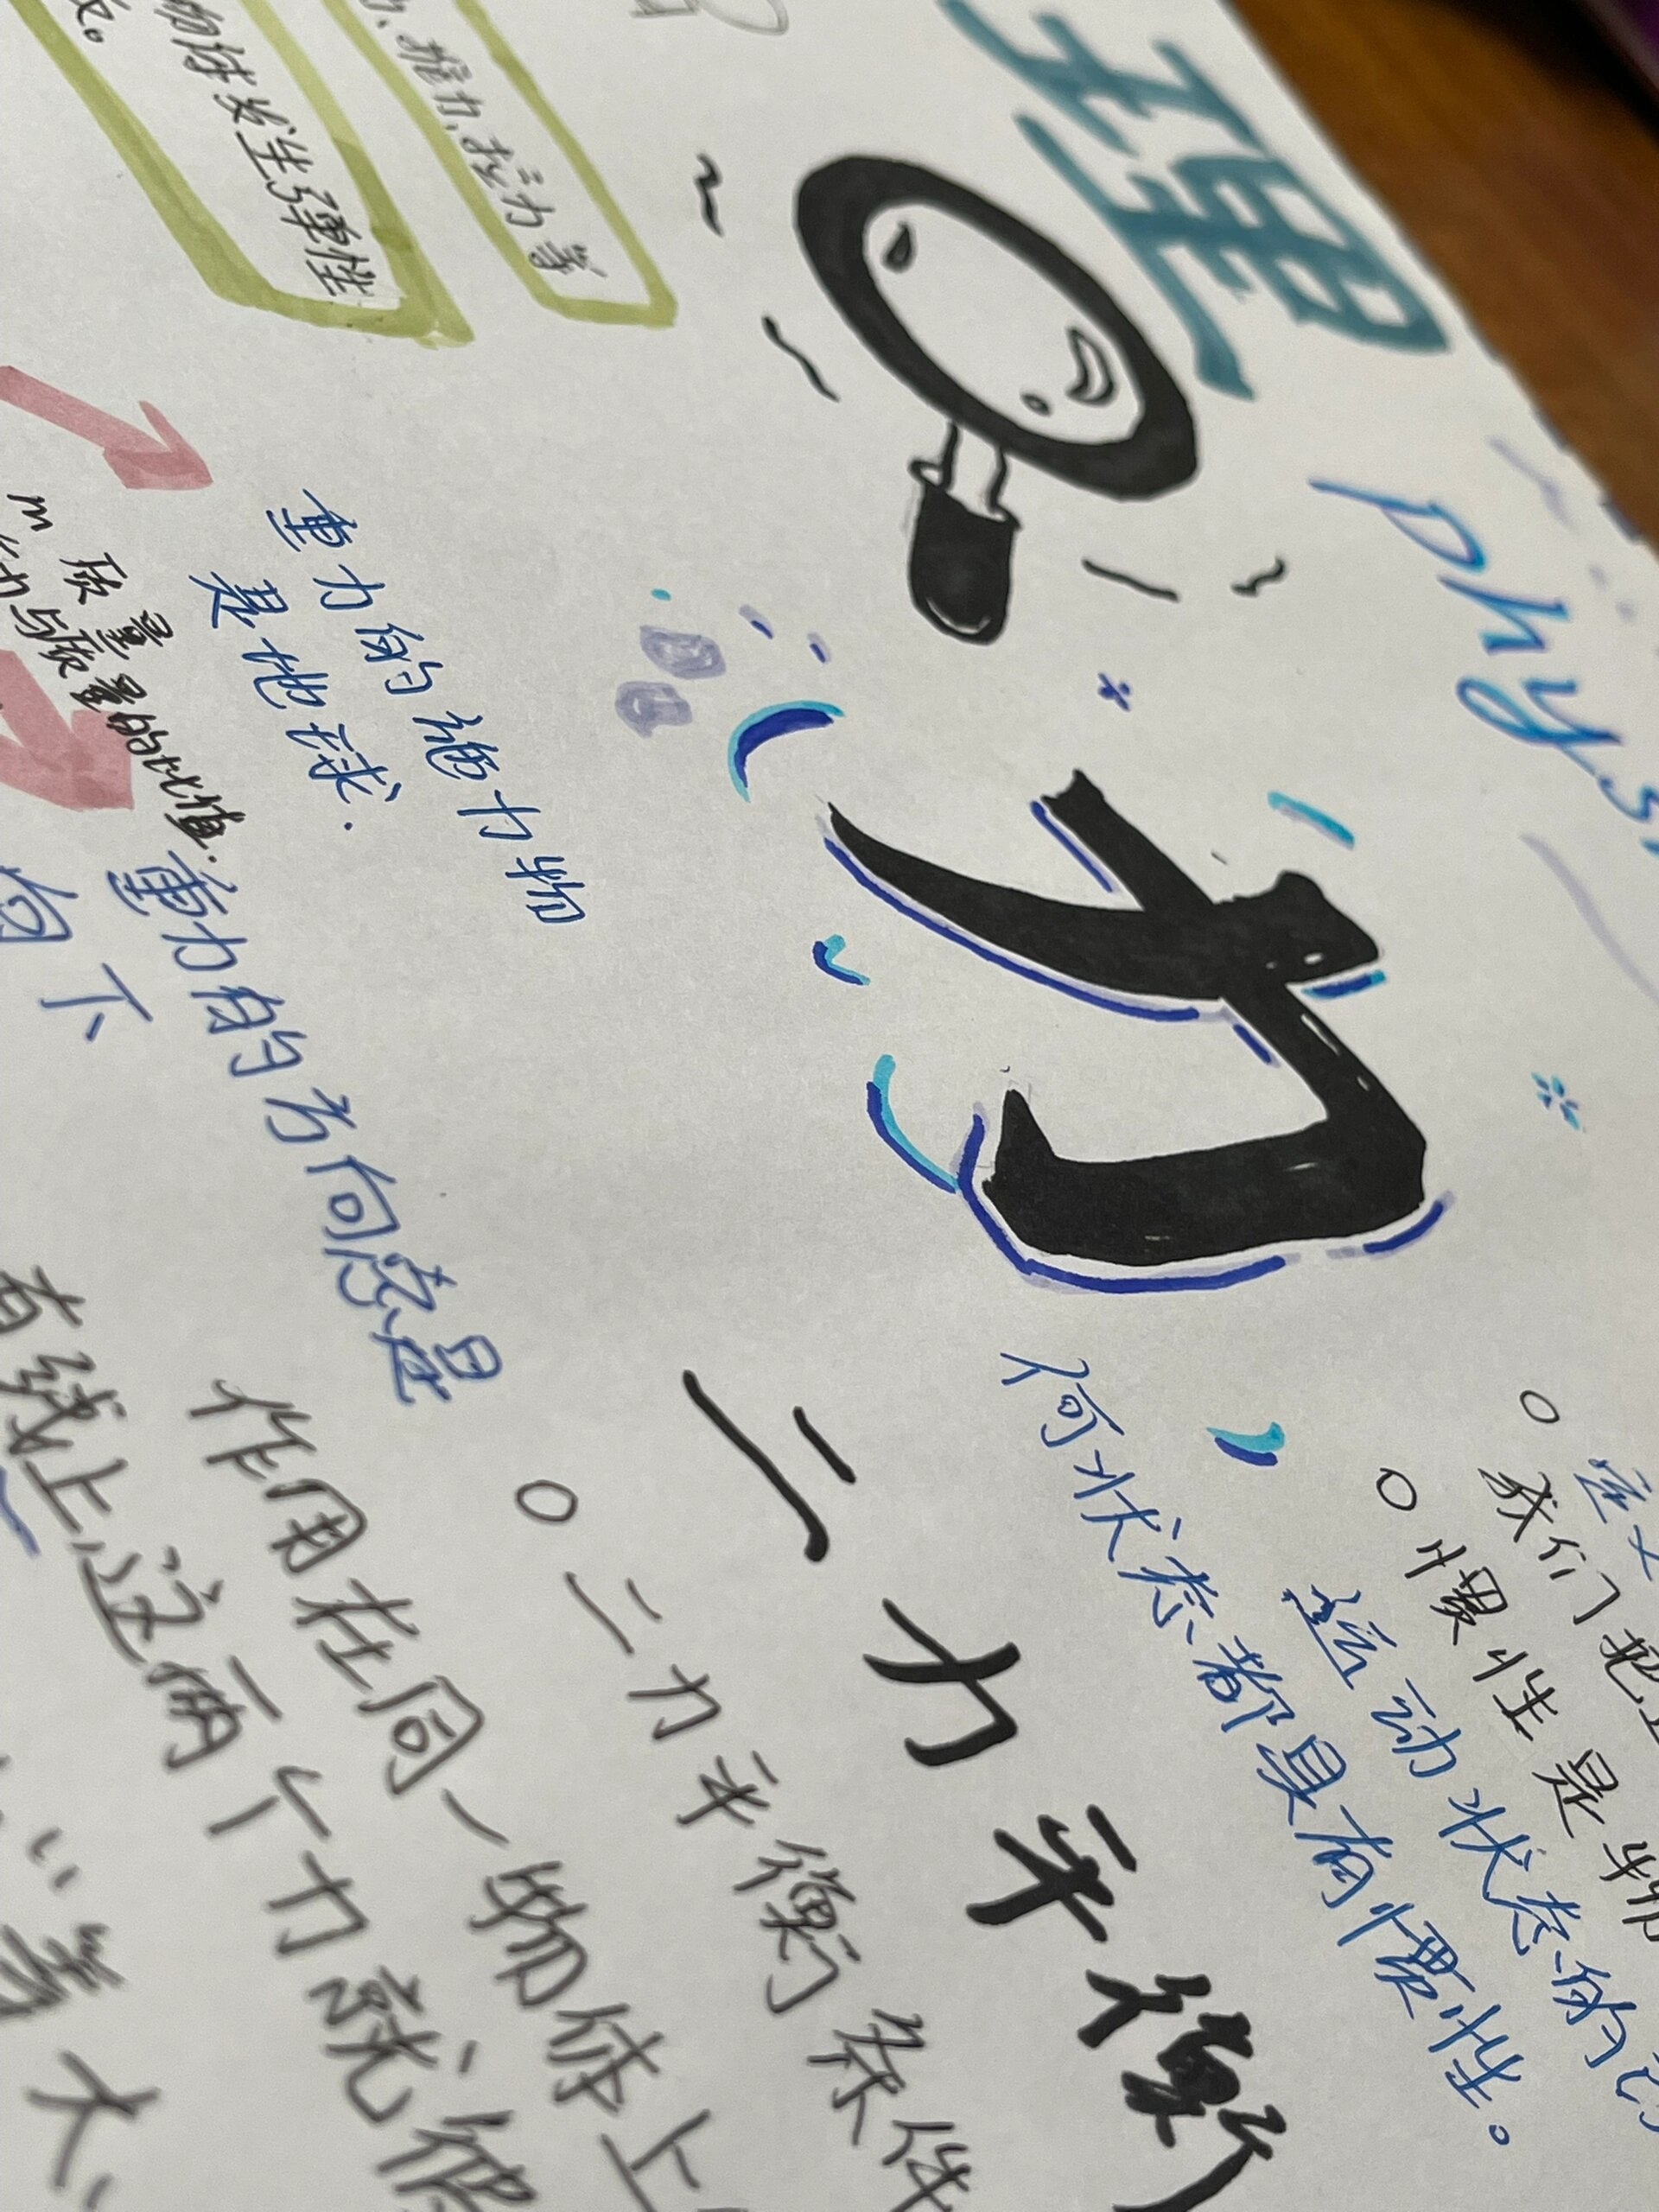 理
physi
力
、推力、拉力等
物体发生弹性
重力的施力物
是地球.
m 质量
力与质量的比值.
重力的方向总是
向下
我们把
惯性是物
运动状态的
何状态都具有惯性。
二力平衡
○二力平衡条件
作用在同一物体上
直线上这两个力就彼
等大